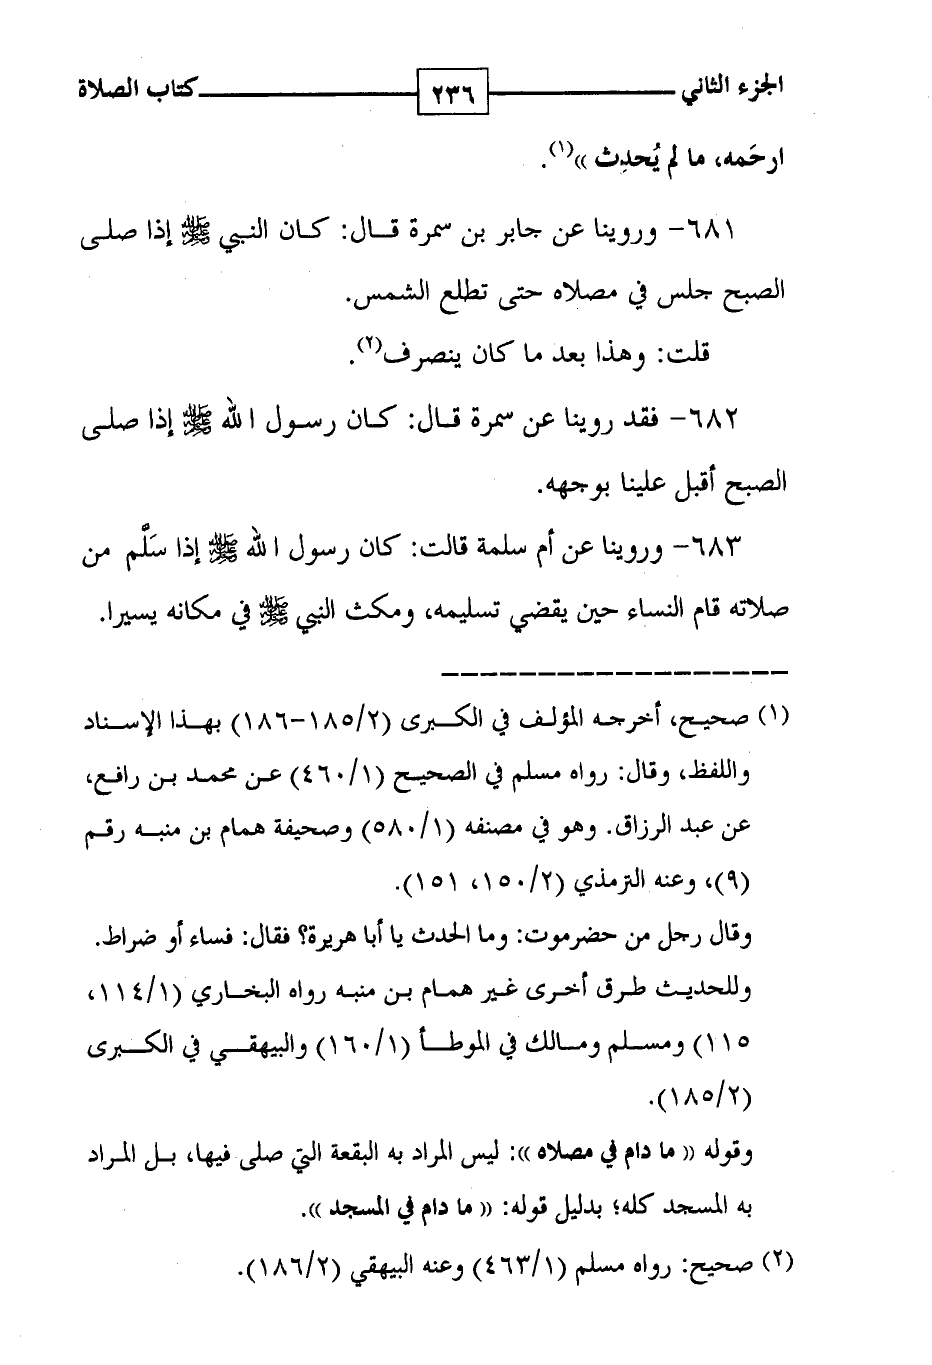 الجزء الثاني ٢٣٦ كتاب الصلاة
ارحَمه، ما لم يُحدِث »(١).
٦٨١- وروينا عن جابر بن سمرة قال: كان النبي ﷺ إذا صلى
الصبح جلس في مصلاه حتى تطلع الشمس.
قلت: وهذا بعد ما كان ينصرف(٢).
٦٨٢- فقد روينا عن سمرة قال: كان رسول الله ﷺ إذا صلى
الصبح أقبل علينا بوجهه.
٦٨٣- وروينا عن أم سلمة قالت: كان رسول الله ﷺ إذا سَلَّم من
صلاته قام النساء حين يقضي تسليمه، ومكث النبي ﷺ في مكانه يسيرا.
(١) صحيح، أخرجه المؤلف في الكبرى (١٨٥/٢-١٨٦) بهذا الإسناد
واللفظ، وقال: رواه مسلم في الصحيح (٤٦٠/١) عن محمد بن رافع،
عن عبد الرزاق. وهو في مصنفه (٥٨٠/١) وصحيفة همام بن منبه رقم
(٩)، وعنه الترمذي (١٥٠/٢، ١٥١).
وقال رجل من حضرموت: وما الحدث يا أبا هريرة؟ فقال: فساء أو ضراط.
وللحديث طرق أخرى غير همام بن منبه رواه البخاري (١١٤/١،
١١٥) ومسلم ومالك في الموطأ (١٦٠/١) والبيهقي في الكبرى
(١٨٥/٢).
وقوله « ما دام في مصلاه »: ليس المراد به البقعة التي صلى فيها، بل المراد
به المسجد كله؛ بدليل قوله: « ما دام في المسجد ».
(٢) صحيح: رواه مسلم (٤٦٣/١) وعنه البيهقي (١٨٦/٢).